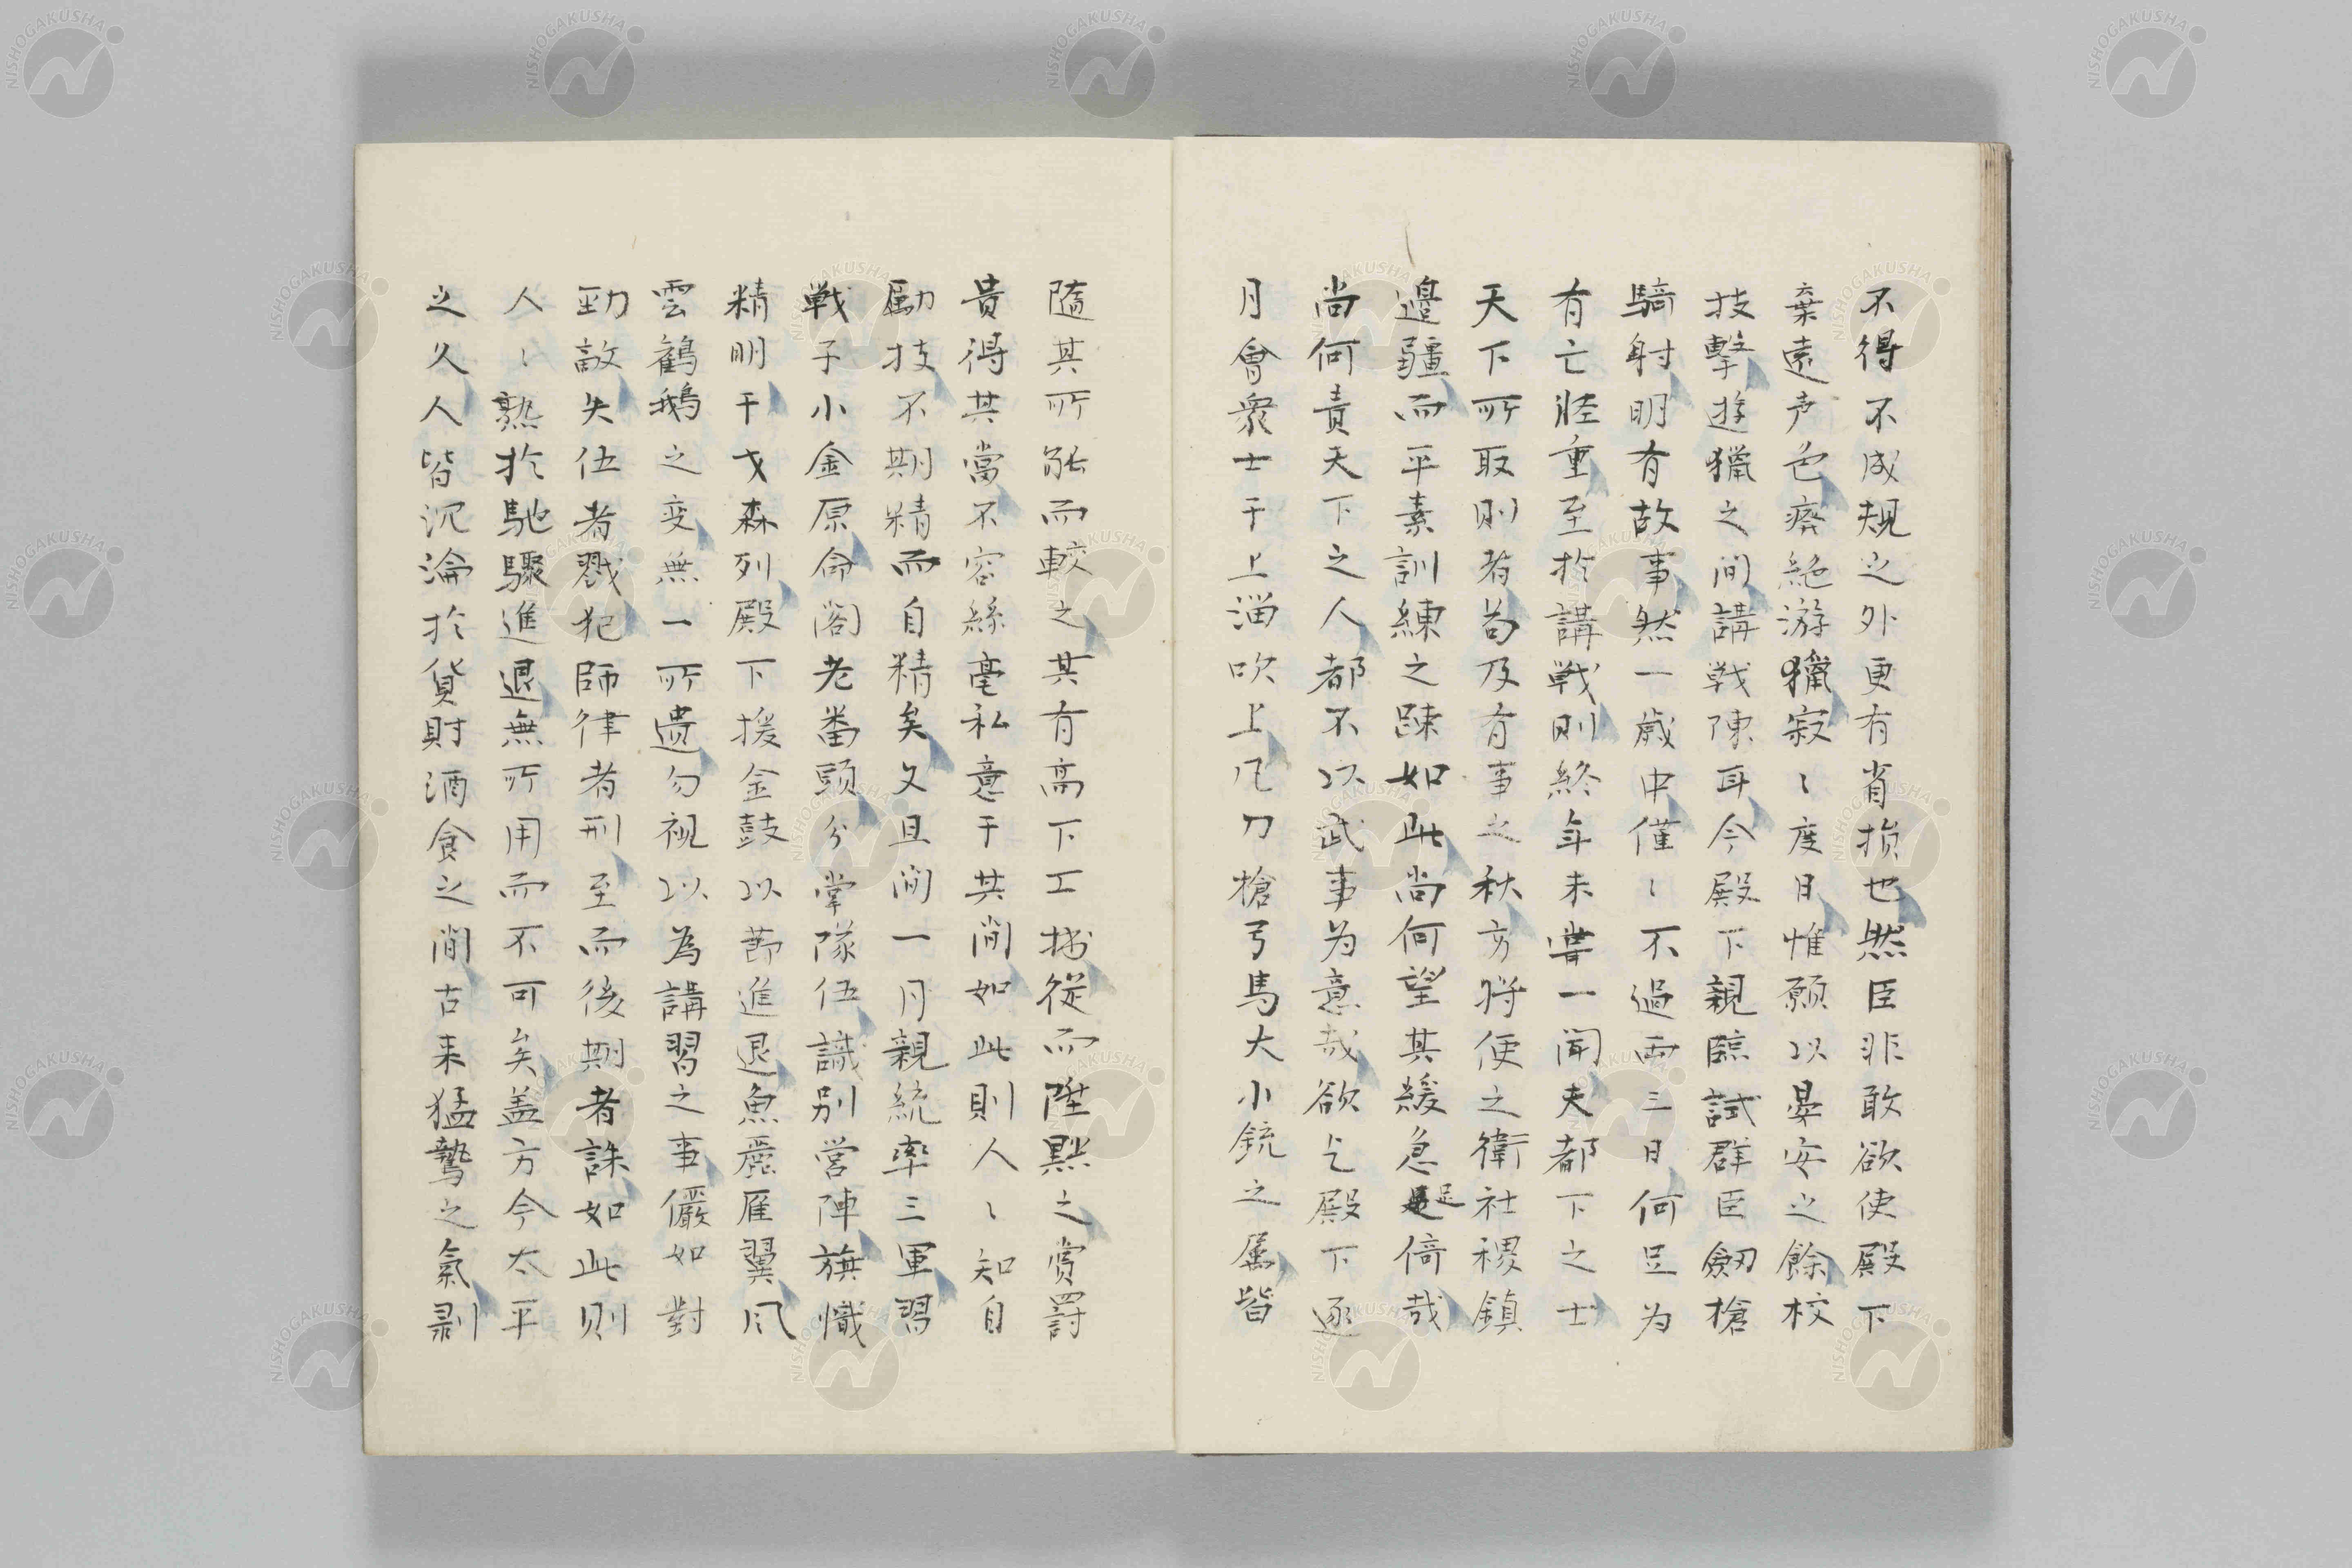 不得不成規之外更有省損也然臣非敢欲使殿下
棄遠声色齊絶游獵寂〻度日惟願以晏安之餘校
技擊遊獵之間講戦陳耳今殿下親臨試群臣劔槍
騎射明有故事然一歳中僅〻不過両三日何足为
有亡軽重至於講戦則終年未嘗一聞夫都下之士
天下所取則若苟及有事之秋方将使之衛社稷鎮
邊疆而平素訓練之踈如此尚何望其緩急足倚哉
尚何責天下之人都不以武事为意哉欲乞殿下逐
月會衆士于上溜吹上凡刀槍弓馬大小銃之属皆
隨其所能而較之其有高下工拙從而陞黙之賞罰
貴得其當不容絲毫私意于其間如此則人〻知自
勵技不期精而自精矣又且間一月親統率三軍習
戦子小金原命閣老番頭分掌隊伍識別営陣旗幟
精明干戈森列殿下援金鼓以節進退魚麗雁翼风
雲鶴鵝之変無一所遗勿視以為講習之事儼如對
勁敵失伍者戮犯師律者刑至而後期者誅如此則
人〻熟於馳驟進退無所用而不可矣盖方今太平
之久人皆沉淪於貨財酒食之間古来猛鷙之氣剥